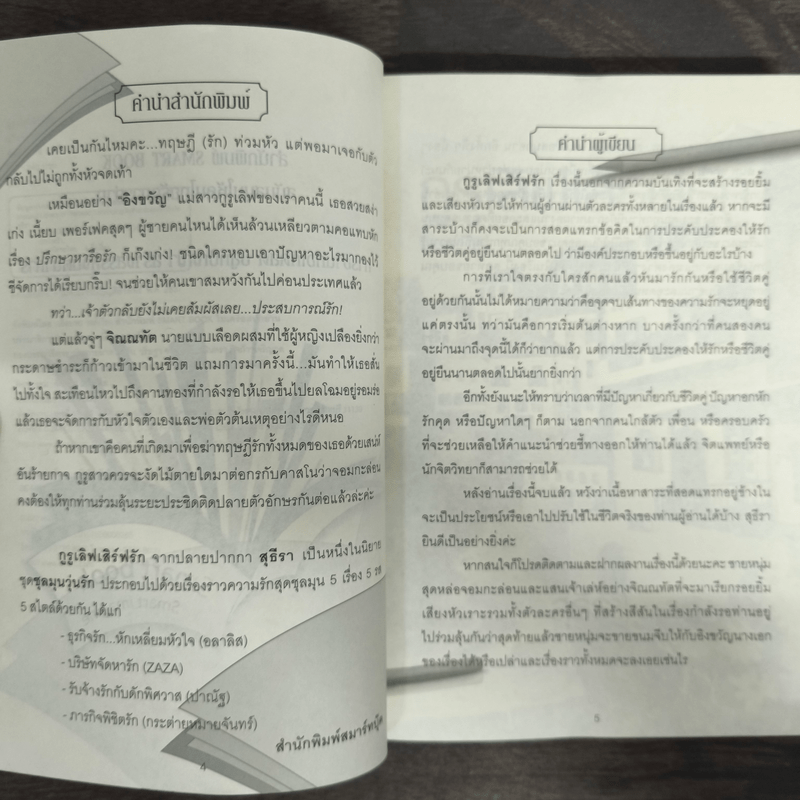 คำนำสำนักพิมพ์
เคยเป็นกันไหมคะ...ทฤษฎี (รัก) ท่วมหัว แต่พอมาเจอกับตัว
กลับไปไม่ถูกทั้งหัวจดเท้า
เหมือนอย่าง "อิงขวัญ" แม่สาวกูรูเลิฟของเราคนนี้ เธอสวยสง่า
เก่ง เนี้ยบ เพอร์เฟคสุดๆ ผู้ชายคนไหนได้เห็นล้วนเหลียวตามคอแทบหัก
เรื่อง ปรึกษาหารือรัก ก็เก๊งเก่ง! ชนิดใครหอบเอาปัญหาอะไรมากองให้
ชีจัดการได้เรียบกริ๊บ! จนช่วยให้คนเขาสมหวังกันไปค่อนประเทศแล้ว
ทว่า...เจ้าตัวกลับยังไม่เคยสัมผัสเลย...ประสบการณ์รัก!
แต่แล้วจู่ๆ จิณณทัต นายแบบเลือดผสมที่ใช้ผู้หญิงเปลืองยิ่งกว่า
กระดาษชำระก็ก้าวเข้ามาในชีวิต แถมการมาครั้งนี้...มันทำให้เธอสั่น
ไปทั้งใจ สะเทือนไหวไปถึงคานทองที่กำลังรอให้เธอขึ้นไปยลโฉมอยู่รอมร่อ
แล้วเธอจะจัดการกับหัวใจตัวเองและพ่อตัวต้นเหตุอย่างไรดีหนอ
ถ้าหากเขาคือคนที่เกิดมาเพื่อฆ่าทฤษฎีรักทั้งหมดของเธอด้วยเสน่ห์
อันร้ายกาจ กูรูสาวควรจะงัดไม้ตายใดมาต่อกรกับคาสโนว่าจอมกะล่อน
คงต้องให้ทุกท่านร่วมลุ้นระยะประชิดติดปลายตัวอักษรกันต่อแล้วล่ะค่ะ
กูรูเลิฟเสิร์ฟรัก จากปลายปากกา สุธีรา เป็นหนึ่งในนิยาย
ชุดชุลมุนวุ่นรัก ประกอบไปด้วยเรื่องราวความรักสุดชุลมุน 5 เรื่อง 5 รส
5 สไตล์ด้วยกัน ได้แก่
- ธุรกิจรัก...หักเหลี่ยมหัวใจ (อลาลิส)
- บริษัทจัดหารัก (ZAZA)
- รับจ้างรักกับดักพิศวาส (ปาณัฐ)
- ภารกิจพิชิตรัก (กระต่ายหมายจันทร์)
สำนักพิมพ์สมาร์ทบุ๊ค
4
คำนำผู้เขียน
กูรูเลิฟเสิร์ฟรัก เรื่องนี้นอกจากความบันเทิงที่จะสร้างรอยยิ้ม
และเสียงหัวเราะให้ท่านผู้อ่านผ่านตัวละครทั้งหลายในเรื่องแล้ว หากจะมี
สาระบ้างก็คงจะเป็นการสอดแทรกข้อคิดในการประคับประคองให้รัก
หรือชีวิตคู่อยู่ยืนนานตลอดไป ว่ามีองค์ประกอบหรือขึ้นอยู่กับอะไรบ้าง
การที่เราใจตรงกับใครสักคนแล้วหันมารักกันหรือใช้ชีวิตคู่
อยู่ด้วยกันนั้นไม่ได้หมายความว่าคือจุดจบเส้นทางของความรักจะหยุดอยู่
แค่ตรงนั้น ทว่ามันคือการเริ่มต้นต่างหาก บางครั้งกว่าที่คนสองคน
จะผ่านมาถึงจุดนี้ได้ก็ว่ายากแล้ว แต่การประคับประคองให้รักหรือชีวิตคู่
อยู่ยืนนานตลอดไปนั้นยากยิ่งกว่า
อีกทั้งยังแนะให้ทราบว่าเวลาที่มีปัญหาเกี่ยวกับชีวิตคู่ ปัญหาอกหัก
รักคุด หรือปัญหาใดๆ ก็ตาม นอกจากคนใกล้ตัว เพื่อน หรือครอบครัว
ที่จะช่วยเหลือให้คำแนะนำช่วยชี้ทางออกให้ท่านได้แล้ว จิตแพทย์หรือ
นักจิตวิทยาก็สามารถช่วยได้
หลังอ่านเรื่องนี้จบแล้ว หวังว่าเนื้อหาสาระที่สอดแทรกอยู่ข้างใน
จะเป็นประโยชน์หรือเอาไปปรับใช้ในชีวิตจริงของท่านผู้อ่านได้บ้าง สุธีรา
ยินดีเป็นอย่างยิ่งค่ะ
หากสนใจก็โปรดติดตามและฝากผลงานเรื่องนี้ด้วยนะคะ ชายหนุ่ม
สุดหล่อจอมกะล่อนและแสนเจ้าเล่ห์อย่างจิณณทัตที่จะมาเรียกรอยยิ้ม
เสียงหัวเราะรวมทั้งตัวละครอื่นๆ ที่สร้างสีสันในเรื่องกำลังรอท่านอยู่
ไปร่วมลุ้นกันว่าสุดท้ายแล้วชายหนุ่มจะขายขนมจีบให้กับอิงขวัญนางเอก
ของเรื่องได้หรือเปล่าและเรื่องราวทั้งหมดจะลงเอยเช่นไร
5